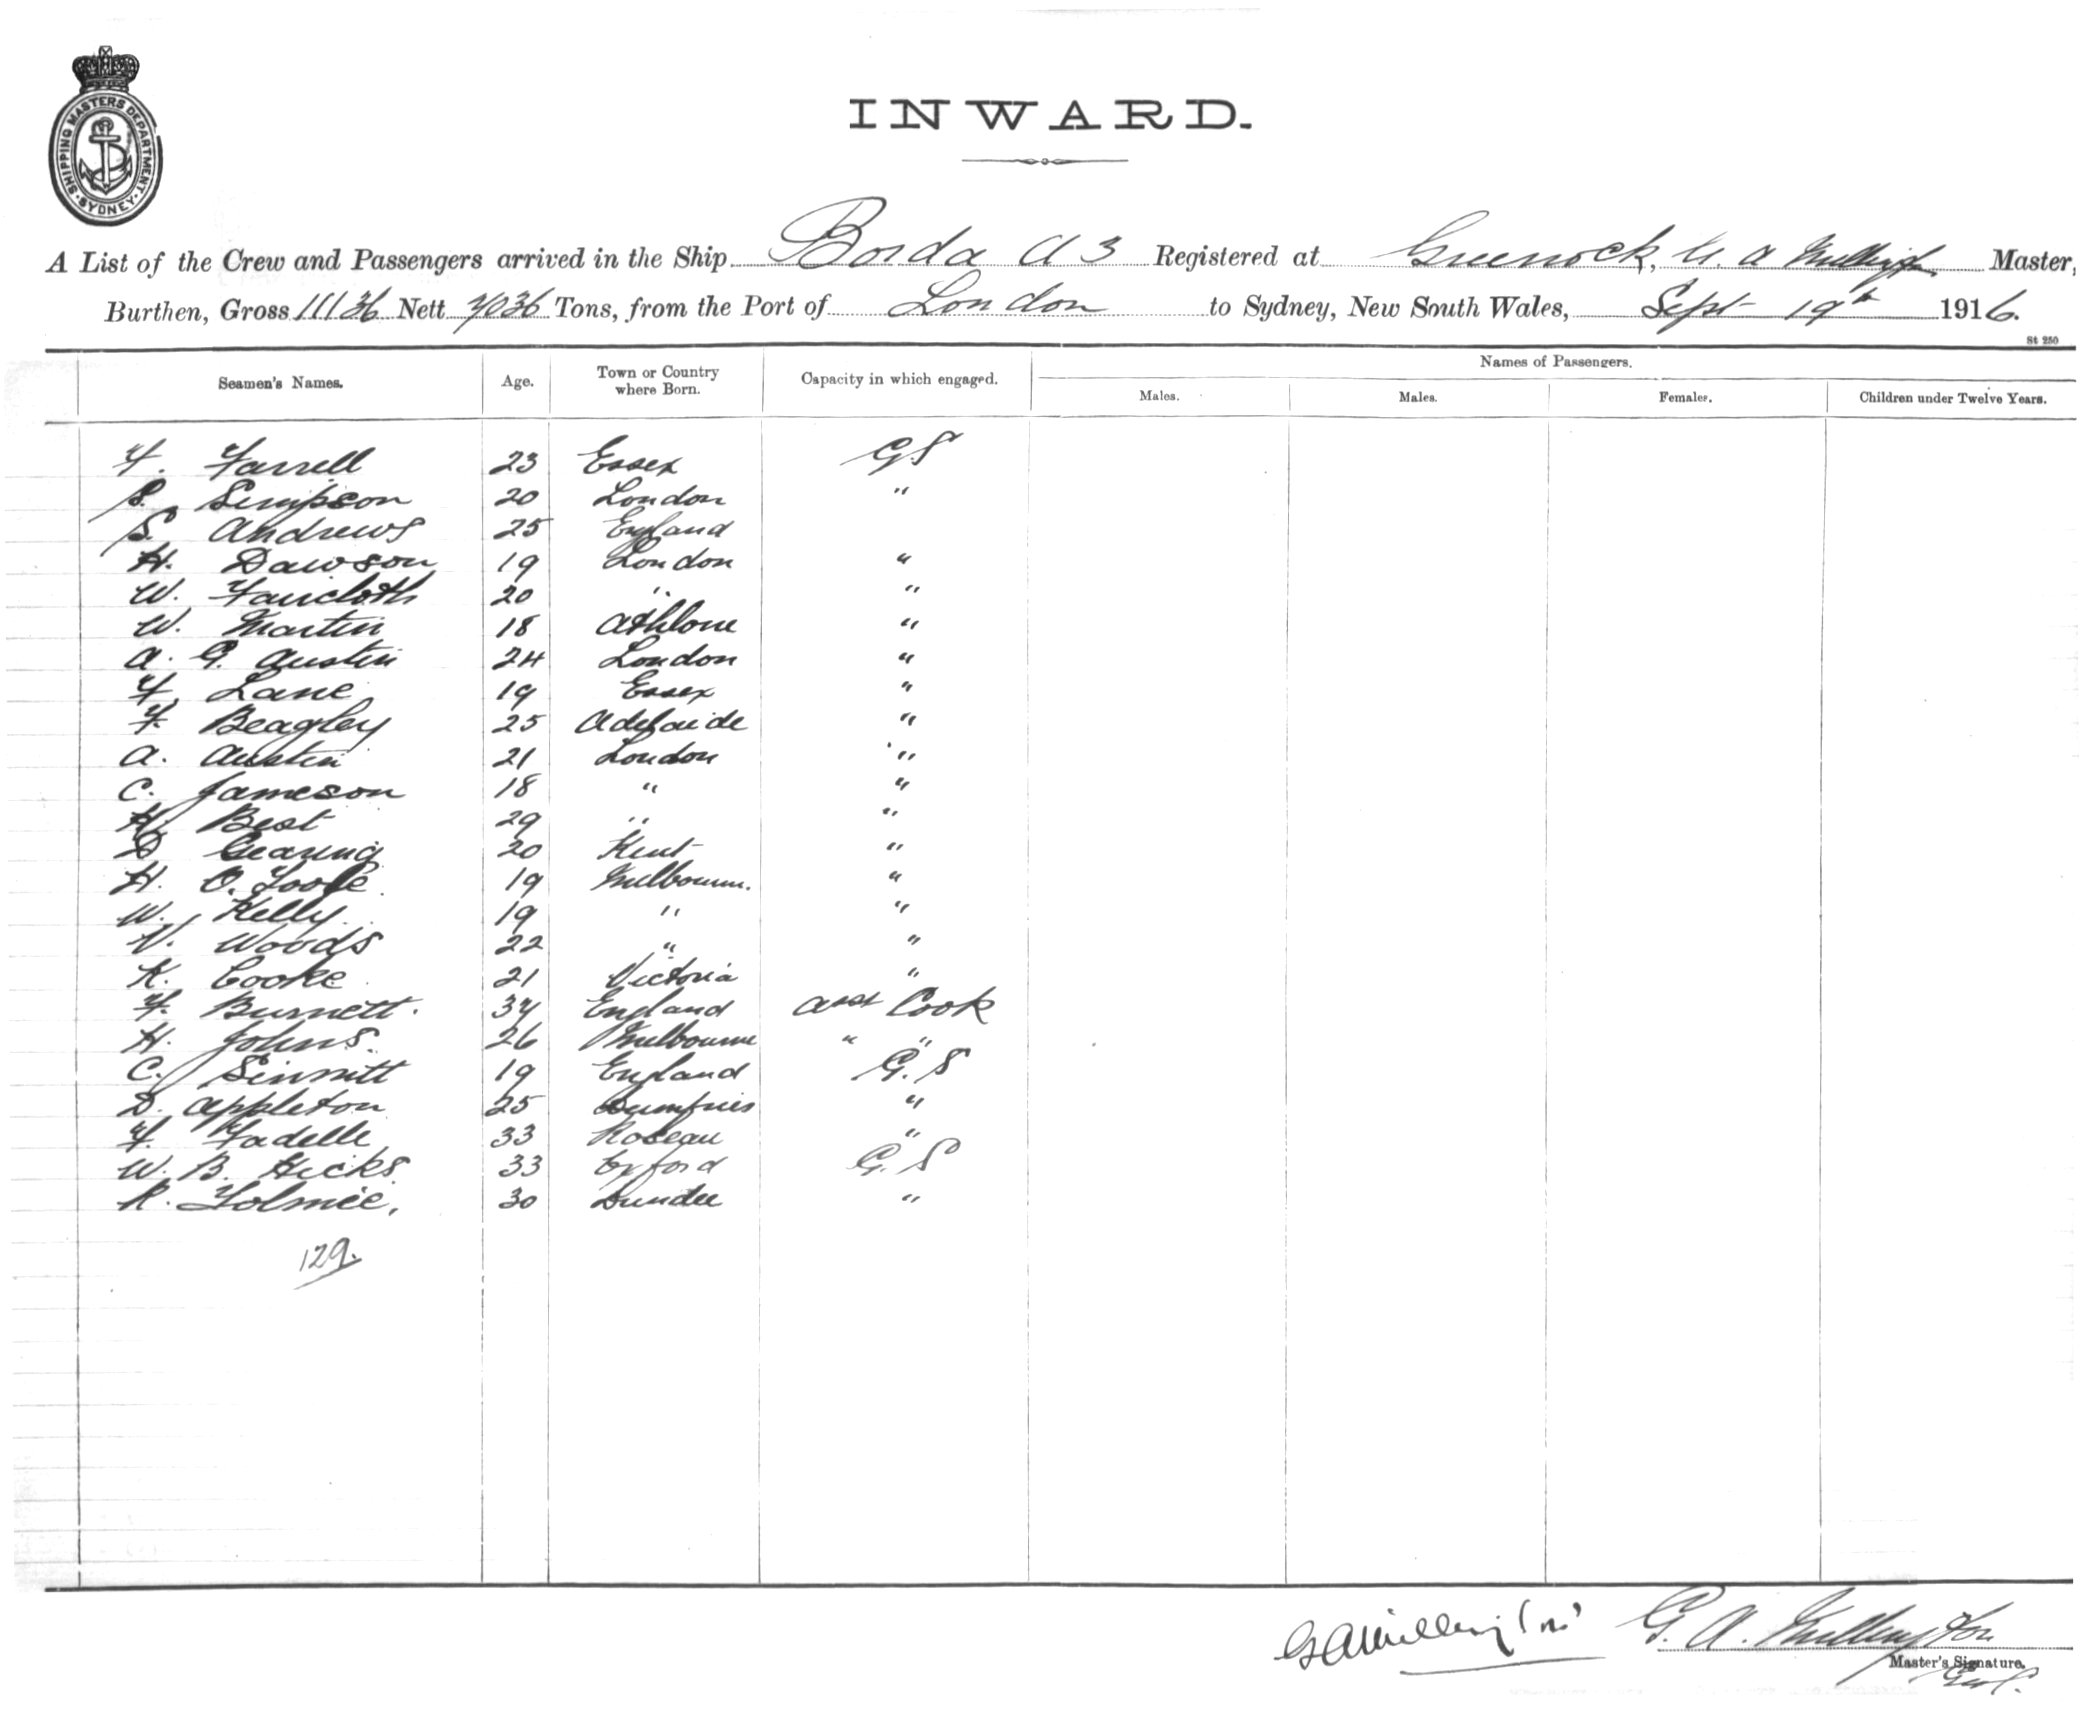 SHIPPING MASTERS DEPARTMENT · SYDNEY ·
INWARD.
A List of the Crew and Passengers arrived in the Ship Borda A 3 Registered at Greenock, G. A Millington Master,
Burthen, Gross 11136 Nett 7036 Tons, from the Port of London to Sydney, New South Wales, Sept 19th 1916.
St 250
Seamen's Names. Age. Town or Country where Born. Capacity in which engaged. Names of Passengers.
Males. Males. Females. Children under Twelve Years.
F. Farrell 23 Essex G.S
S. Simpson 20 London "
S. Andrews 25 England
H. Dawson 19 London "
W. Faircloth 20 " "
W. Martin 18 Athlone "
A. G. Austin 24 London "
F. Lane 19 Essex "
F. Beagley 25 Adelaide "
A. Austin 21 London "
C. Jameson 18 " "
H. Best 29 " "
D Gearing 20 Kent "
H. O. Toole 19 Melbourne. "
W. Kelly 19 " "
V. Woods 22 " "
K. Cooke 21 Victoria "
F. Burnett. 34 England asst Cook
H. Johns. 26 Melbourne " "
C. Sinnitt 19 England G. S
D. Appleton 25 Dumfries "
F. Fadelle 33 Roseau "
W. B. Hicks 33 Oxford G. S
R. Tolmie. 30 Dundee "
129.
G A Millington G. A. Millington
Master's Signature.